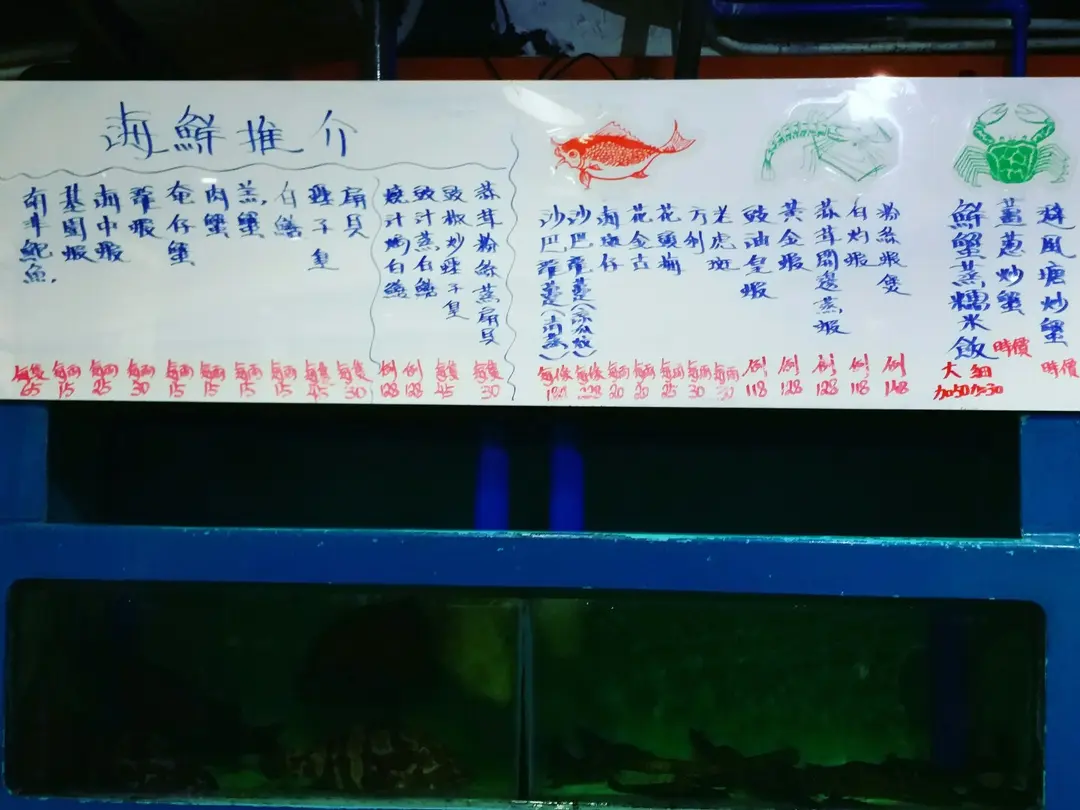 海鮮推介
南非鮑魚.
每隻
65
基圍蝦
每両
15
海中蝦
每両
25
羅蝦
每両
30
奄仔蟹
每両
15
肉蟹
每両
15
羔蟹
每両
15
白鱔
每両
15
蟶子皇
每隻
45
扇貝
每隻
30
燒汁焗白鱔
例
128
豉汁蒸白鱔
例
128
豉椒炒蟶子皇
每隻
45
蒜茸粉絲蒸扇貝
每隻
30
沙巴龍躉(清蒸)
每條
沙巴龍躉
每條
228
海斑仔
每両
20
花金古
每両
20
花頭鱲
每両
25
方利
每両
30
老虎斑
每両
豉油皇蝦
例
118
黃金蝦
例
128
蒜茸開邊蒸蝦
例
128
白灼蝦
例
118
粉絲蝦煲
例
148
鮮蟹蒸糯米飯
大 細
加50加30
薑蔥炒蟹
時價
避風塘炒蟹
時價